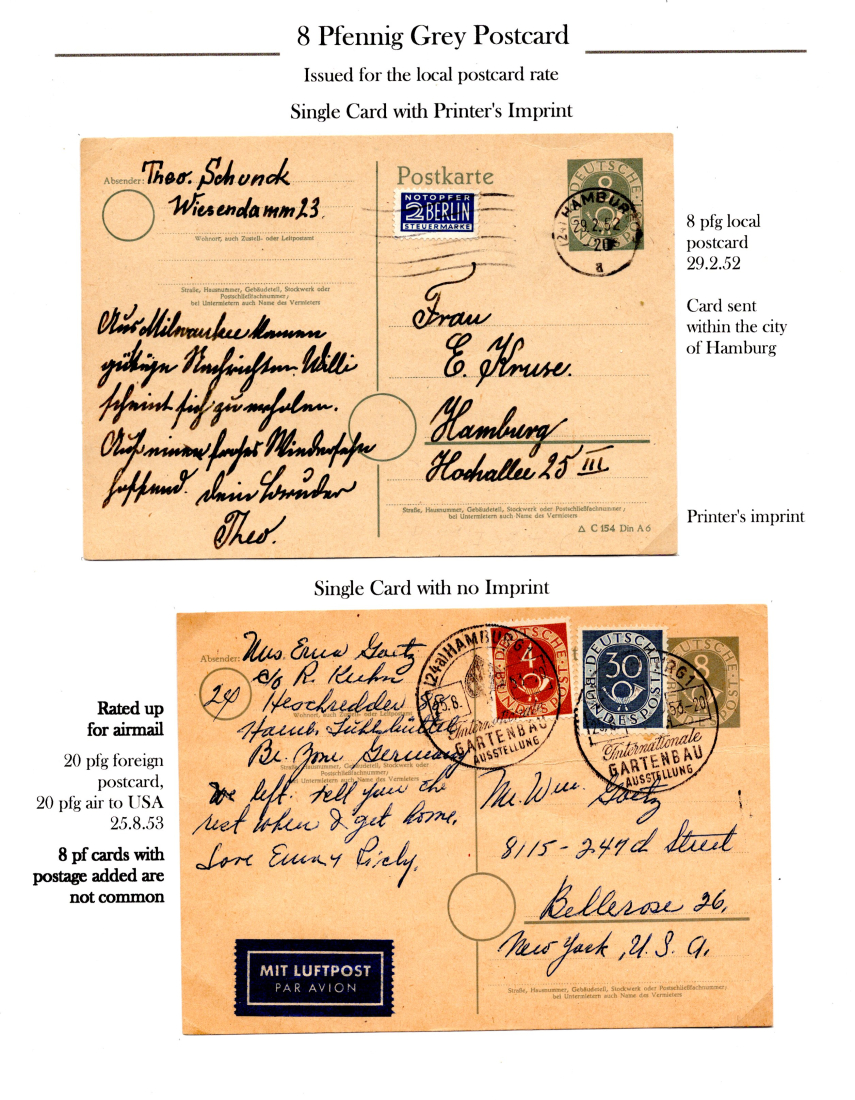 8 Pfennig Grey Postcard
Issued for the local postcard rate
Single Card with Printer's Imprint
Absender: Theo. Schunck
Wiesendamm 23.
Wohnort, auch Zustell- oder Leitpostamt
Straße, Hausnummer, Gebäudeteil, Stockwerk oder
Postschließfachnummer;
bei Untermietern auch Name des Vermieters
Aus Milwaukee kamen
Nachrichten. Willi
scheint sich zu erholen.
Auf einen frohes Wiedersehn
hoffend. Dein Bruder
Theo.
Postkarte
NOTOPFER
2 BERLIN
STEUERMARKE
DEUTSCHE
8
HAMBURG
29.2.52
20
a
Frau
E. Kruse.
Hamburg
Hochallee 25 III
Straße, Hausnummer, Gebäudeteil, Stockwerk oder Postschließfachnummer;
bei Untermietern auch Name des Vermieters
△ C 154 Din A 6
8 pfg local
postcard
29.2.52
Card sent
within the city
of Hamburg
Printer's imprint
Single Card with no Imprint
Rated up
for airmail
20 pfg foreign
postcard,
20 pfg air to USA
25.8.53
8 pf cards with
postage added are
not common
Absender: Mrs. Erna Goetz
c/o R. Kuhn
Heschredder
Hamb. Fuhlsbüttel
Br. Zone Germany
24
We left. Tell you the
rest when I get home.
Love Erna +
(24a) HAMBURG 1
25.8.
Internationale
GARTENBAU
AUSSTELLUNG
4
DEUTSCHE BUNDESPOST
30
DEUTSCHE BUNDESPOST
DEUTSCHE
8
53-20
Internationale
GARTENBAU
AUSSTELLUNG
Mr. Wm. Goetz
8115-247th Street
Bellerose 26,
New York, U.S.A.
Straße, Hausnummer, Gebäudeteil, Stockwerk oder Postschließfachnummer;
bei Untermietern auch Name des Vermieters
MIT LUFTPOST
PAR AVION